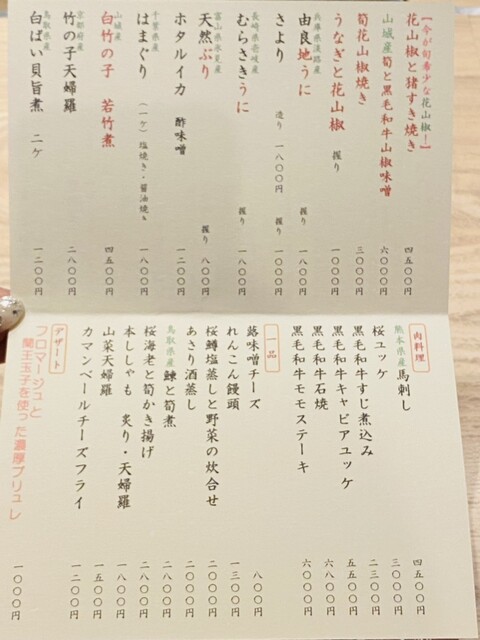 【今が旬希少な花山椒！】
花山椒と猪すき焼き 四五〇〇円
山城産 筍と黒毛和牛山椒味噌 六〇〇〇円
筍花山椒焼き 三〇〇〇円
うなぎと花山椒 握り 一〇〇〇円
兵庫県淡路産
由良地うに 握り 一八〇〇円
さより 造り 一八〇〇円 握り 一〇〇〇円
長崎県壱岐産
むらさきうに 握り 一八〇〇円
富山県氷見産
天然ぶり 握り 八〇〇円
ホタルイカ 酢味噌 一二〇〇円
千葉県産
はまぐり （一ケ）塩焼き・醤油焼き 一八〇〇円
山城産
白竹の子 若竹煮 四五〇〇円
京都府産
竹の子天婦羅 二八〇〇円
鳥取県産
白ばい貝旨煮 二ケ 一二〇〇円
肉料理
熊本県産馬刺し 四五〇〇円
桜ユッケ 三〇〇〇円
黒毛和牛すじ煮込み 二三〇〇円
黒毛和牛キャビアユッケ 五五〇〇円
黒毛和牛石焼 六〇〇〇円
黒毛和牛モモステーキ 六〇〇〇円
一品
蕗味噌チーズ 八〇〇円
れんこん饅頭 一三〇〇円
桜鱒塩蒸しと野菜の炊合せ 二〇〇〇円
あさり酒蒸し 二〇〇〇円
鳥取県産鰊と筍煮 二〇〇〇円
桜海老と筍かき揚げ 二八〇〇円
本ししゃも 炙り・天婦羅 一八〇〇円
山菜天婦羅 一五〇〇円
カマンベールチーズフライ 一二〇〇円
デザート
フロマージュと
蘭王玉子を使った濃厚ブリュレ 一〇〇〇円